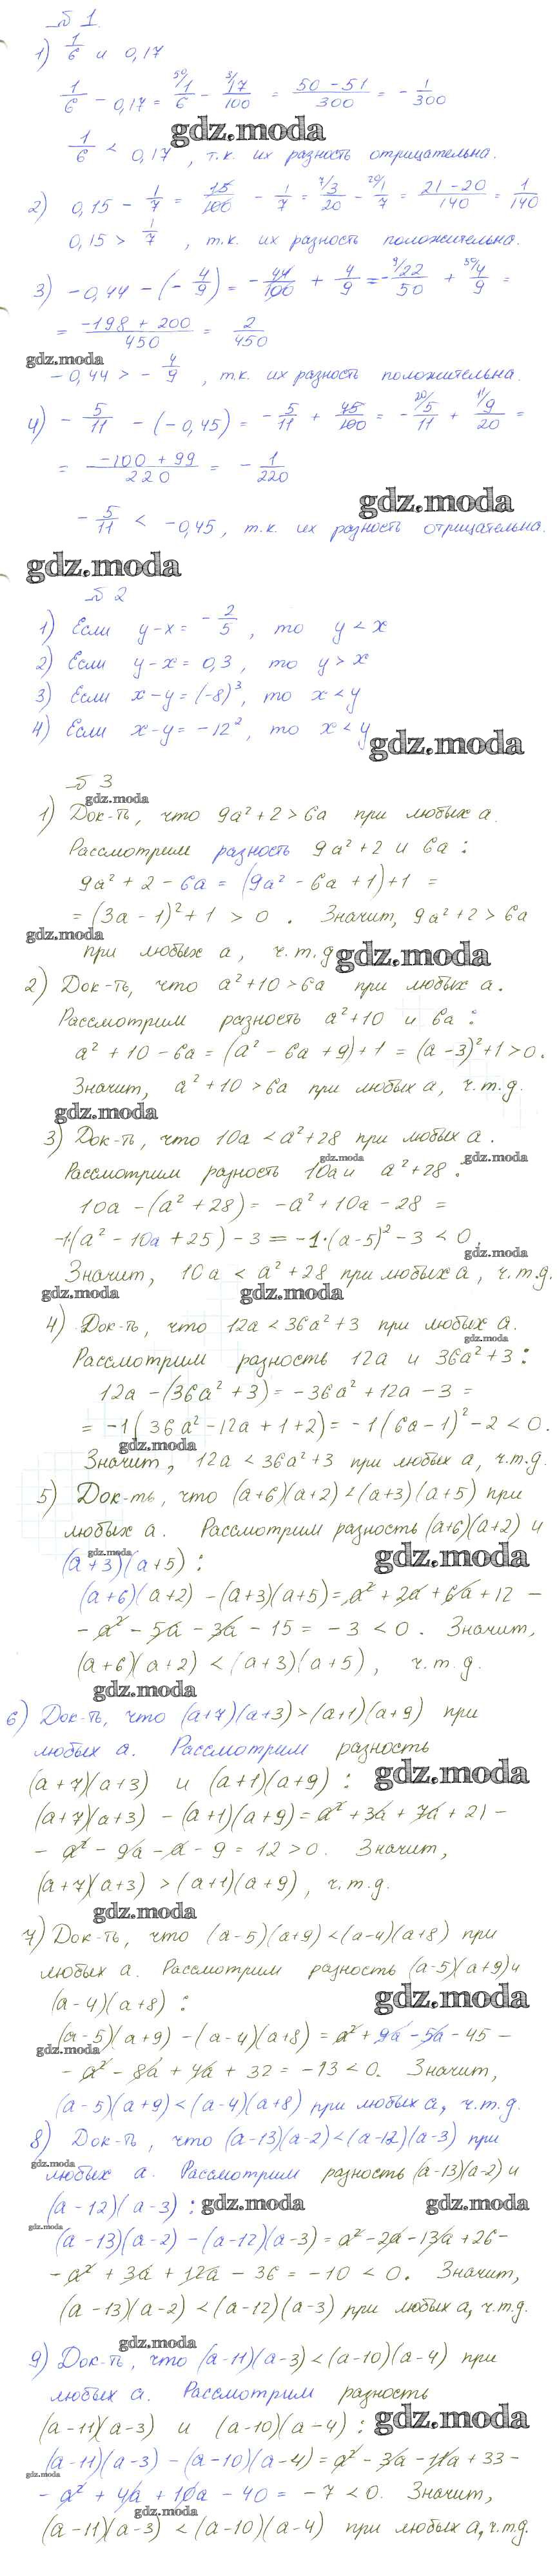 № 1
1) 1/6 и 0,17
1/6 - 0,17 = 50/1/6 - 3/17/100 = 50-51/300 = - 1/300
gdz.moda
1/6 < 0,17, т.к. их разность отрицательна.
2) 0,15 - 1/7 = 15/100 - 1/7 = 7/3/20 - 20/1/7 = 21-20/140 = 1/140
0,15 > 1/7, т.к. их разность положительна.
3) -0,44 - (- 4/9) = - 44/100 + 4/9 = - 9/22/50 + 50/4/9 =
= -198 + 200/450 = 2/450
gdz.moda
-0,44 > - 4/9, т.к. их разность положительна.
4) - 5/11 - (-0,45) = - 5/11 + 45/100 = - 20/5/11 + 11/9/20 =
= -100 + 99/220 = - 1/220
gdz.moda
- 5/11 < -0,45, т.к. их разность отрицательна.
gdz.moda
№ 2
1) Если y-x = - 2/5, то y < x
2) Если y-x = 0,3, то y > x
3) Если x-y = (-8)³, то x < y
4) Если x-y = -12², то x < y
gdz.moda
№ 3
gdz.moda
1) Док-ть, что 9a²+2 > 6a при любых a.
Рассмотрим разность 9a²+2 и 6a:
9a² + 2 - 6a = (9a² - 6a + 1) + 1 =
= (3a - 1)² + 1 > 0. Значит, 9a²+2 > 6a
gdz.moda
при любых a, ч.т.д
gdz.moda
2) Док-ть, что a²+10 > 6a при любых a.
Рассмотрим разность a²+10 и 6a:
a² + 10 - 6a = (a² - 6a + 9) + 1 = (a - 3)² + 1 > 0.
Значит, a²+10 > 6a при любых a, ч.т.д.
gdz.moda
3) Док-ть, что 10a < a²+28 при любых a.
gdz.moda gdz.moda
Рассмотрим разность 10a и a²+28:
10a - (a² + 28) = -a² + 10a - 28 =
-1(a² - 10a + 25) - 3 = -1·(a-5)² - 3 < 0.
gdz.moda
Значит, 10a < a²+28 при любых a, ч.т.д.
gdz.moda gdz.moda
4) Док-ть, что 12a < 36a²+3 при любых a.
gdz.moda
Рассмотрим разность 12a и 36a²+3:
12a - (36a² + 3) = -36a² + 12a - 3 =
= -1(36a² - 12a + 1 + 2) = -1(6a-1)² - 2 < 0.
gdz.moda
Значит, 12a < 36a²+3 при любых a, ч.т.д.
5) Док-ть, что (a+6)(a+2) < (a+3)(a+5) при
любых a. Рассмотрим разность (a+6)(a+2) и
gdz.moda gdz.moda
(a+3)(a+5):
(a+6)(a+2) - (a+3)(a+5) = a² + 2a + 6a + 12 -
- a² - 5a - 3a - 15 = -3 < 0. Значит,
(a+6)(a+2) < (a+3)(a+5), ч.т.д.
gdz.moda
6) Док-ть, что (a+7)(a+3) > (a+1)(a+9) при
любых a. Рассмотрим разность
(a+7)(a+3) и (a+1)(a+9):
gdz.moda
(a+7)(a+3) - (a+1)(a+9) = a² + 3a + 7a + 21 -
- a² - 9a - a - 9 = 12 > 0. Значит,
(a+7)(a+3) > (a+1)(a+9), ч.т.д.
gdz.moda
7) Док-ть, что (a-5)(a+9) < (a-4)(a+8) при
любых a. Рассмотрим разность (a-5)(a+9) и
(a-4)(a+8):
gdz.moda
(a-5)(a+9) - (a-4)(a+8) = a² + 9a - 5a - 45 -
gdz.moda
- a² - 8a + 4a + 32 = -13 < 0. Значит,
(a-5)(a+9) < (a-4)(a+8) при любых a, ч.т.д.
8) Док-ть, что (a-13)(a-2) < (a-12)(a-3) при
gdz.moda
любых a. Рассмотрим разность (a-13)(a-2) и
(a-12)(a-3):
gdz.moda gdz.moda
gdz.moda
(a-13)(a-2) - (a-12)(a-3) = a² - 2a - 13a + 26 -
- a² + 3a + 12a - 36 = -10 < 0. Значит,
(a-13)(a-2) < (a-12)(a-3) при любых a, ч.т.д.
gdz.moda
9) Док-ть, что (a-11)(a-3) < (a-10)(a-4) при
любых a. Рассмотрим разность
(a-11)(a-3) и (a-10)(a-4):
gdz.moda
(a-11)(a-3) - (a-10)(a-4) = a² - 3a - 11a + 33 -
gdz.moda
- a² + 4a + 10a - 40 = -7 < 0. Значит,
gdz.moda
(a-11)(a-3) < (a-10)(a-4) при любых a, ч.т.д.